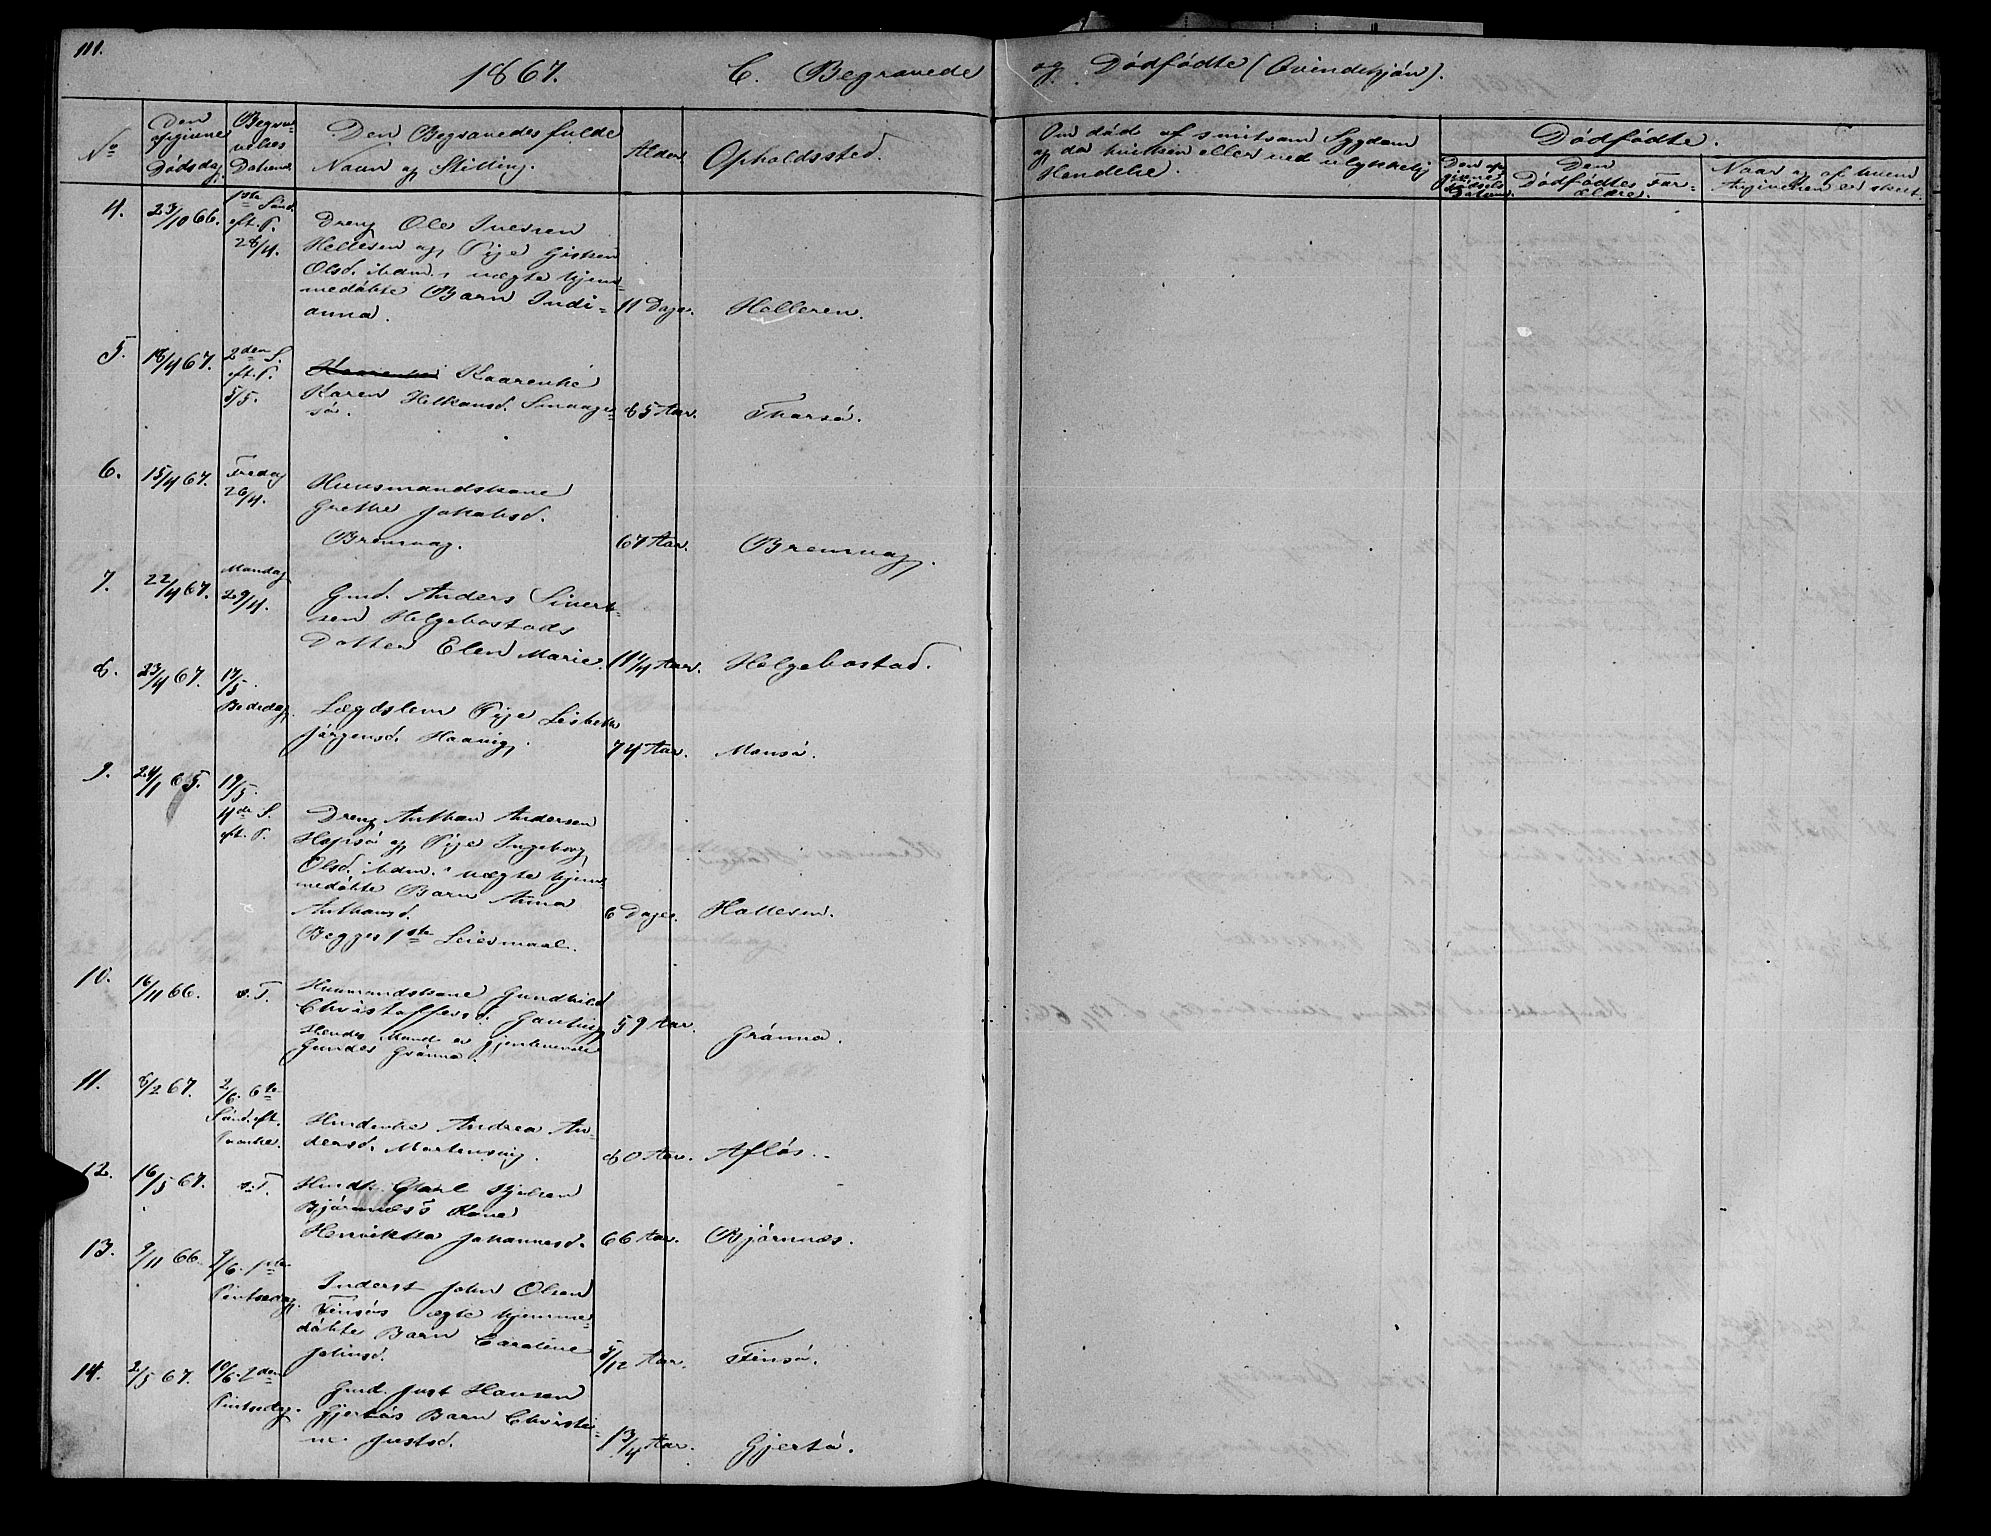 111.
1867. C. Begravede og Dødfødte (Qvindekjön).
No
Den opgivne Dødsdag.
Begravelses Datum
Den Begravedes fulde Navn og Stilling.
Alder
Opholdssted.
Om död af smitsom Sygdom
og da hvilken eller ved ulykkelig
Hendelse.
Dödfödte.
Den opgivne Fødsels Datum
Den Dödfödtes Forældre.
Naar og af hvem Angivelsen er skeet.
4. 23/10 66. 1ste Sönd. eft. P. 28/4.
Dreng Ole Iversen
Hellesen og Pige Gjertru
Olsd. ibdm. uægte hjem-
medöbte Barn Indi-
anna. 11 Dage. Holleren.
5. 18/4 67. 2den S. eft. P. 5/5.
Kaarenke
Karen Helkansd. Smaage-
sö. 85 Aar. Tharsö.
6. 15/4 67. Fredag 26/4.
Huusmandskone
Grethe Jakobsd.
Bremvag. 67 Aar. Bremvag.
7. 22/4 67. Mandag 29/4.
Gmd. Anders Sivert-
sen Helgebostads
Datter Elen Marie. 11 1/4 Aar. Helgebostad.
8. 23/4 67. 17/5. Bededag.
Lægdslem Pige Lisbeth
Jörgensd. Haavig. 74 Aar. Mausö.
9. 24/1 65. 19/5. 4de S. eft. P.
Dreng Anthon Andersen
Hopsö og Pige Ingeborg
Olsd. ibdm. uægte hjem-
medöbte Barn Anna
Anthonsd. 6 Dage. Hallesen.
Begges 1ste Leiermaal.
10. 16/11 66. s. T.
Huusmandskone Gundhild
Christoffersd. 59 Aar.
Hendes Mand er gjenlevende
Grönna. Grönna.
11. 8/2 67. 2/6. 6te Sönd. eft. Paaske.
Huusenke Andrea An-
dersd. 80 Aar. Aflös.
12. 16/5 67. s. T.
Carl
Björnnes's Kone
Henrikka Johannesd. 66 Aar. Björnnæs.
13. 9/11 66. 9/6. 1ste Pintsedag.
Inderst John Olsen
Finsös ægte hjemme-
döbte Barn Caroline
Johnsd. 5/12 Aar. Finsö.
14. 2/5 67. 10/6. 2den Pintsedag.
Gmd. Just Hansen
Gjertös Barn Christi-
ne Justsd. 1 3/4 Aar. Gjertö.